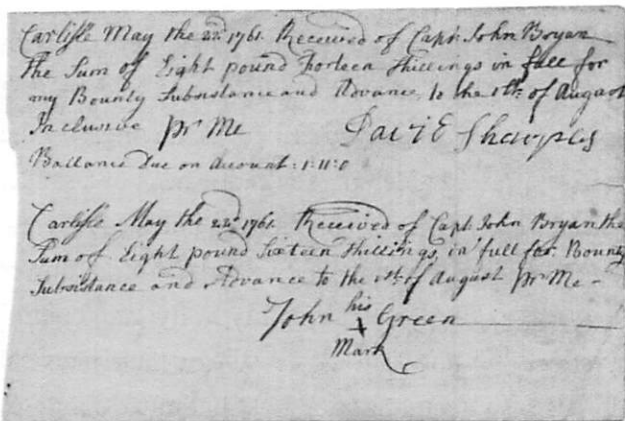 Carlisle May the 22d 1761. Received of Capt. John Bryan
the Sum of Eight pound Forteen Shillings in full for
my Bounty Subsistance and Advance, to the 1th. of August
Inclusive pr. Me David Sharples
Ballance Due on Account: 1:11:0
Carlisle May the 22d 1761. Received of Capt. John Bryan the
Sum of Eight pound Sixteen Shillings, in full for Bounty
Subsistance and Advance to the 1th. of August pr. Me -
John his Green
X
Mark